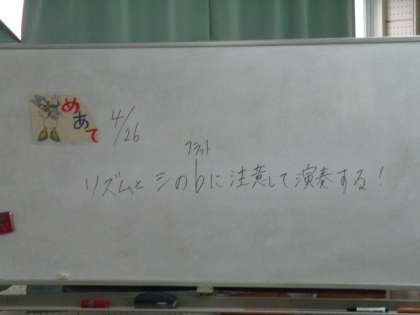 めあて
4/26
フラット
リズムとシの♭に注意して演奏する!